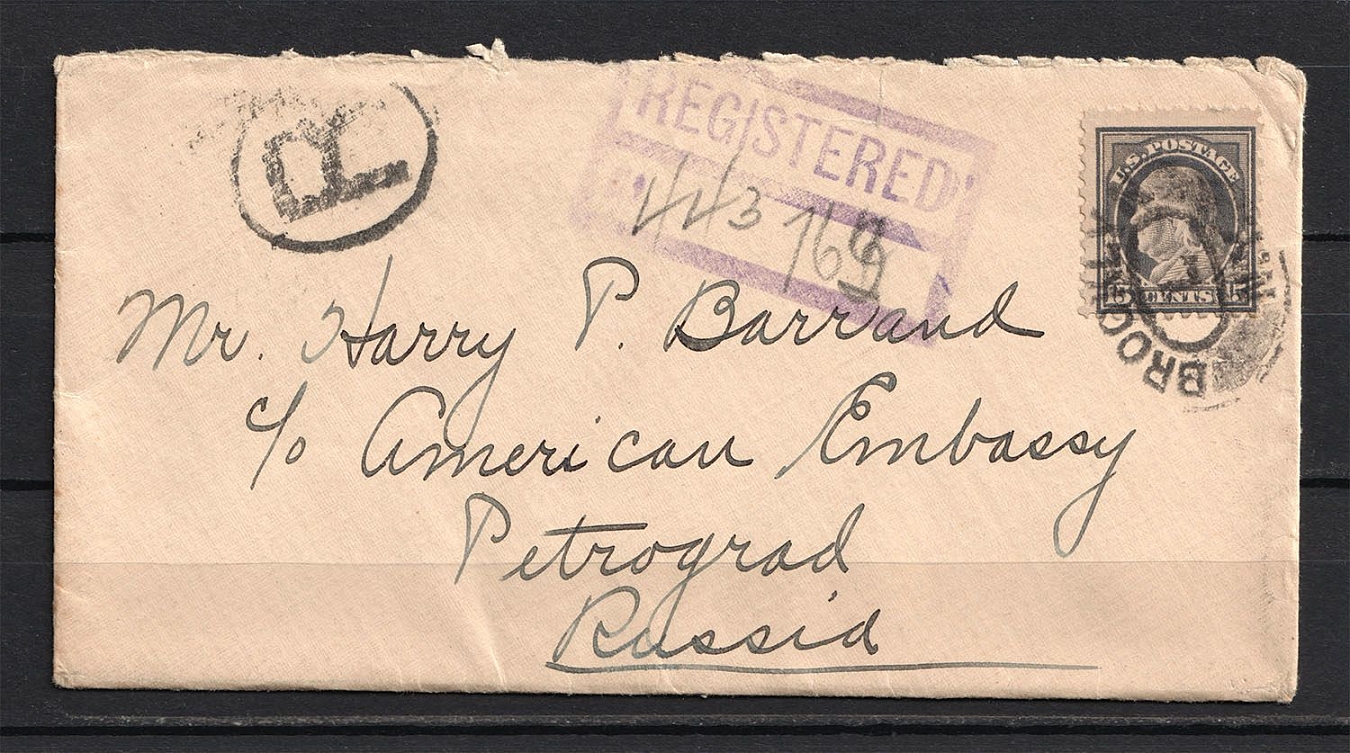 R
REGISTERED
U.S. POSTAGE
15 CENTS 15
Mr. Harry P. Barrand
c/o American Embassy
Petrograd
Russia